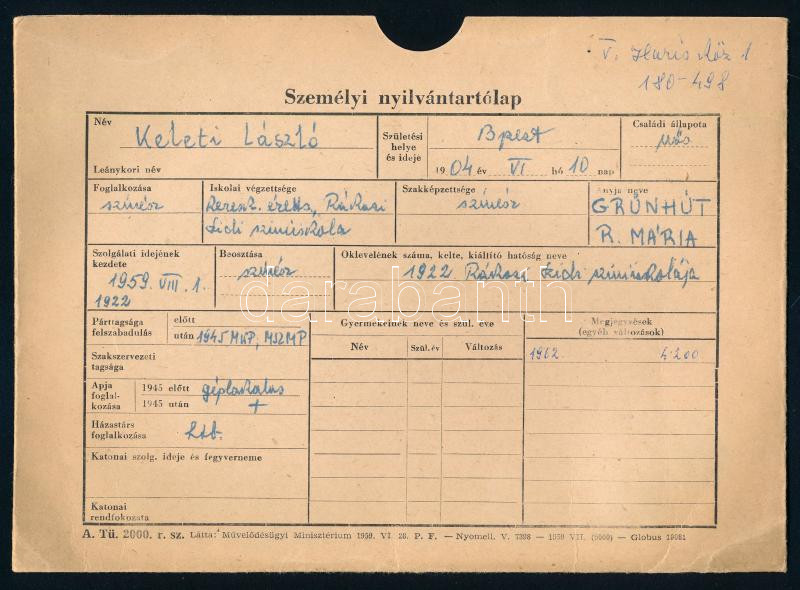 V. Haris köz 1
180-498
Személyi nyilvántartólap
Név
Keleti László
Leánykori név
Születési helye és ideje
Bpest
1904 év VI hó 10 nap
Családi állapota
nős
Foglalkozása
színész
Iskolai végzettsége
Keresk. éretts, Rákosi
Szidi színiiskola
Szakképzettsége
színész
Anyja neve
GRÜNHÚT
R. MÁRIA
Szolgálati idejének kezdete
1959. VIII. 1.
1922
Beosztása
színész
Oklevelének száma, kelte, kiállító hatóság neve
1922 Rákosi Szidi színiiskolája
Párttagsága felszabadulás
előtt
után 1945 MKP, MSZMP
Szakszervezeti tagsága
Apja foglalkozása
1945 előtt géplakatos
1945 után +
Házastárs foglalkozása
Htb.
Katonai szolg. ideje és fegyverneme
Katonai rendfokozata
Gyermekeinek neve és szül. éve
Név Szül. év Változás
Megjegyzések
(egyéb változások)
1962. 4.200
darabanth
A. Tü. 2000. r. sz. Látta: Művelődésügyi Minisztérium 1959. VI. 26. P. F. — Nyomell. V. 7398 — 1959 VII. (5000) — Globus 19081